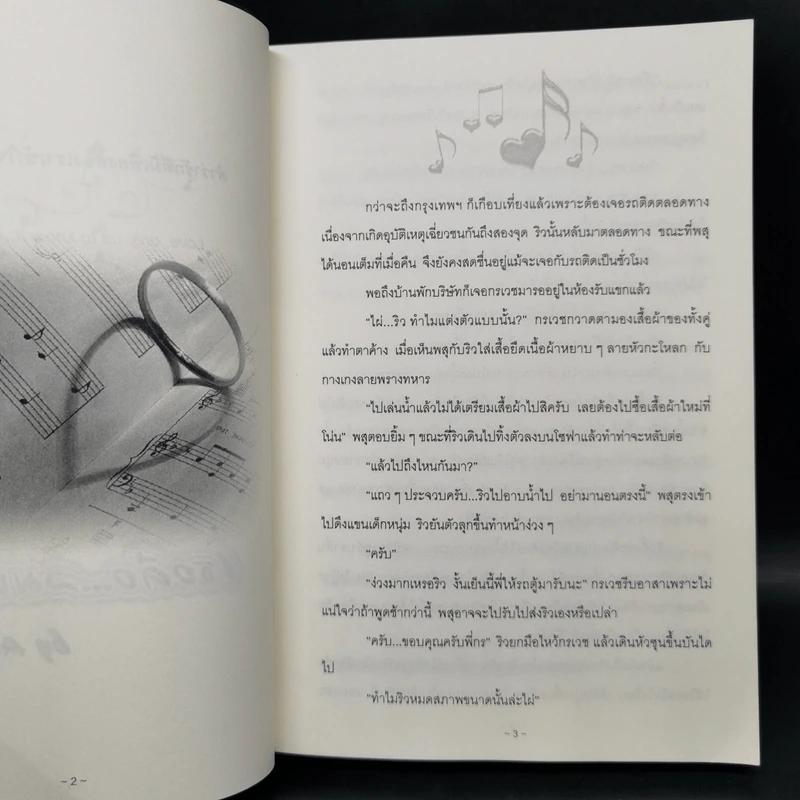 กว่าจะถึงกรุงเทพฯ ก็เกือบเที่ยงแล้วเพราะต้องเจอรถติดตลอดทาง
เนื่องจากเกิดอุบัติเหตุเฉี่ยวชนกันถึงสองจุด ริวนั้นหลับมาตลอดทาง ขณะที่พสุ
ได้นอนเต็มที่เมื่อคืน จึงยังคงสดชื่นอยู่แม้จะเจอกับรถติดเป็นชั่วโมง
พอถึงบ้านพักบริษัทก็เจอกรเวชมารออยู่ในห้องรับแขกแล้ว
"ไผ่...ริว ทำไมแต่งตัวแบบนั้น?" กรเวชกวาดตามองเสื้อผ้าของทั้งคู่
แล้วทำตาค้าง เมื่อเห็นพสุกับริวใส่เสื้อยืดเนื้อผ้าหยาบ ๆ ลายหัวกะโหลก กับ
กางเกงลายพรางทหาร
"ไปเล่นน้ำแล้วไม่ได้เตรียมเสื้อผ้าไปสิครับ เลยต้องไปซื้อเสื้อผ้าใหม่ที่
โน่น" พสุตอบยิ้ม ๆ ขณะที่ริวเดินไปทิ้งตัวลงบนโซฟาแล้วทำท่าจะหลับต่อ
"แล้วไปถึงไหนกันมา?"
"แถว ๆ ประจวบครับ...ริวไปอาบน้ำไป อย่ามานอนตรงนี้" พสุตรงเข้า
ไปดึงแขนเด็กหนุ่ม ริวยันตัวลุกขึ้นทำหน้าง่วง ๆ
"ครับ"
"ง่วงมากเหรอริว งั้นเย็นนี้พี่ให้รถตู้มารับนะ" กรเวชรีบอาสาเพราะไม่
แน่ใจว่าถ้าพูดช้ากว่านี้ พสุอาจจะไปรับไปส่งริวเองหรือเปล่า
"ครับ...ขอบคุณครับพี่กร" ริวยกมือไหว้กรเวช แล้วเดินหัวซุนขึ้นบันได
ไป
"ทำไมริวหมดสภาพขนาดนั้นล่ะไผ่"
~ 3 ~
~ 2 ~